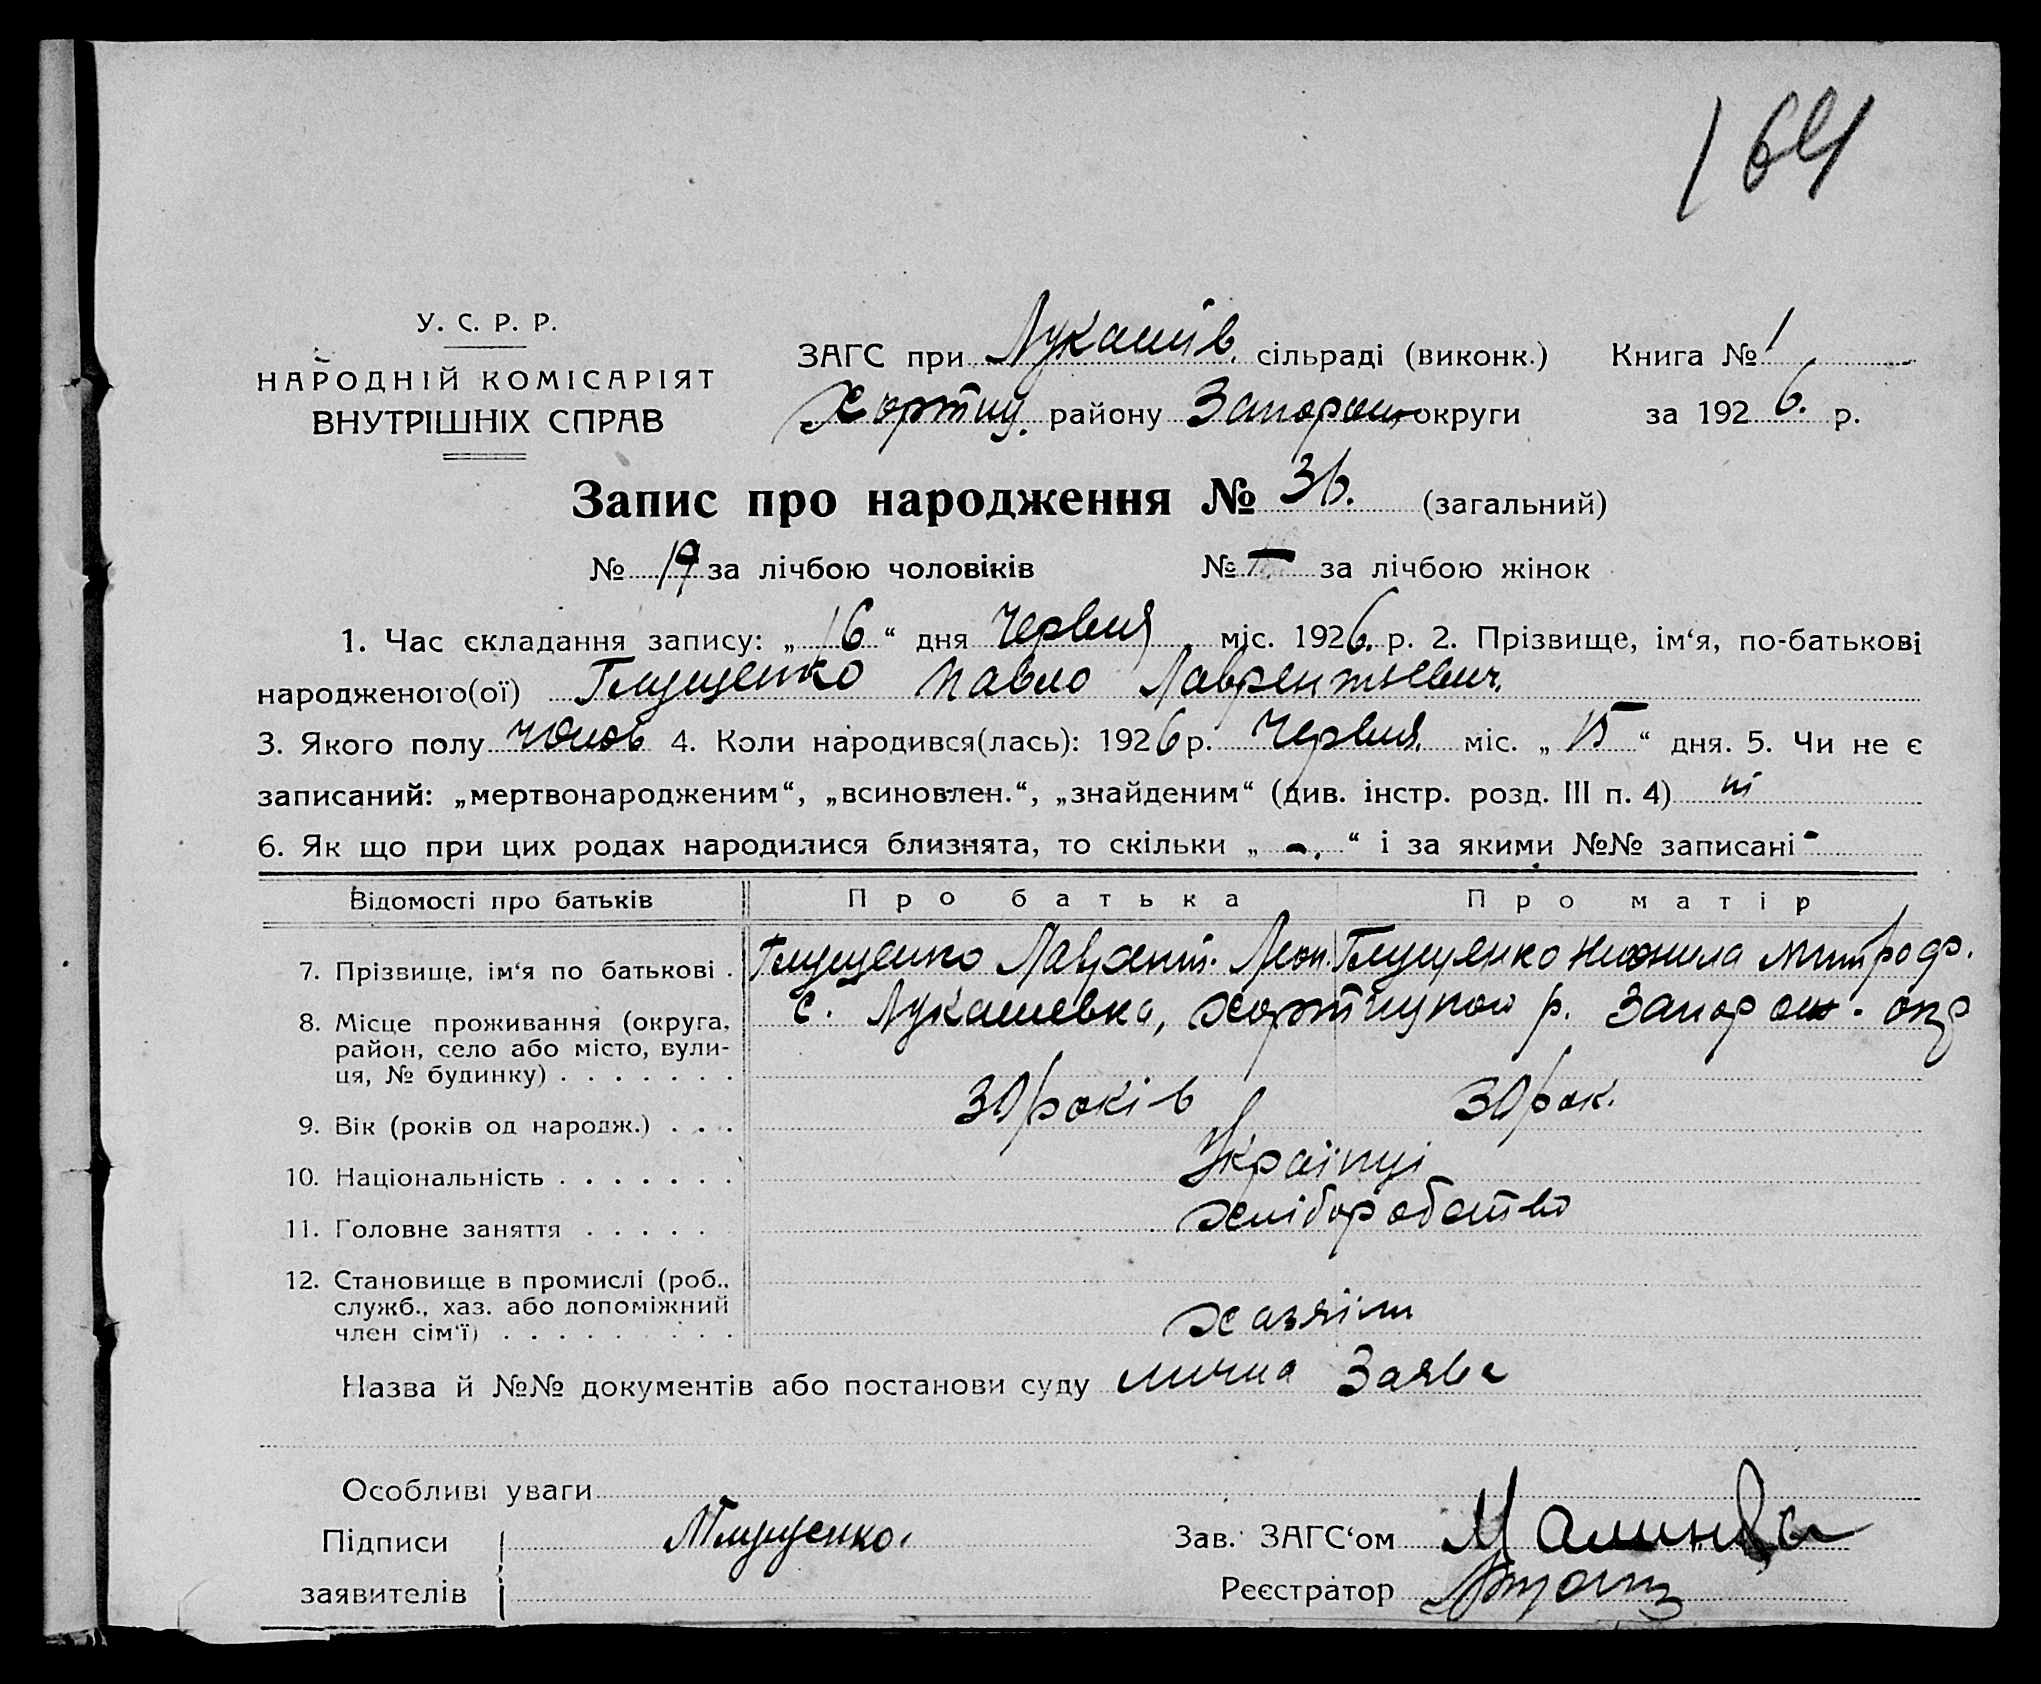 164
У. С. Р. Р.
НАРОДНІЙ КОМІСАРІЯТ
ВНУТРІШНІХ СПРАВ
ЗАГС при Лукашів. сільраді (виконк.) Книга № 1
Хортиц. району Запорож округи за 1926. р.
Запис про народження № 36. (загальний)
№ 19 за лічбою чоловіків № — за лічбою жінок
1. Час складання запису: „16“ дня Червня міс. 1926. р. 2. Прізвище, ім‘я, по-батькові
народженого(ої) Глущенко Павло Лаврентьевич.
3. Якого полу чолов 4. Коли народився(лась): 1926 р. Червня. міс. „15“ дня. 5. Чи не є
записаний: „мертвонародженим“, „всиновлен.“, „знайденим“ (див. інстр. розд. III п. 4) ні
6. Як що при цих родах народилися близнята, то скільки „-.“ і за якими №№ записані -
Відомості про батьків Про батька Про матір
7. Прізвище, ім‘я по батькові . Глущенко Лаврент. Леон. Глущенко Митроф.
8. Місце проживання (округа, с. Лукашевка, Хортицкой р. Запорож. окр
район, село або місто, вули-
ця, № будинку) . . . . . . .
9. Вік (років од народж.) . . . 30 років 30 рок.
10. Національність . . . . . . . Україиці
11. Головне заняття . . . . . Хліборобство
12. Становище в промислі (роб.,
служб., хаз. або допоміжний
член сім‘ї) . . . . . . . . . хазяїни
Назва й №№ документів або постанови суду лична Заява
Особливі уваги
Підписи Глущенко. Зав. ЗАГС‘ом
заявителів Реєстратор